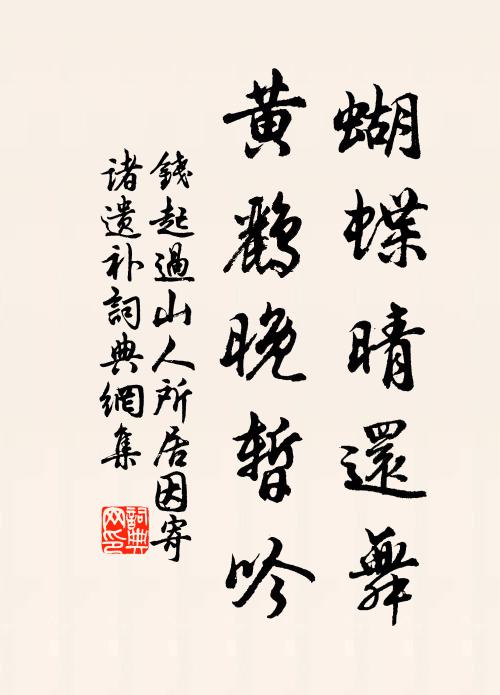 蝴蝶晴還舞
黄鸝晚暫吟
錢起過山人所居因寄
诸遗补詞典網集
詞典
网印